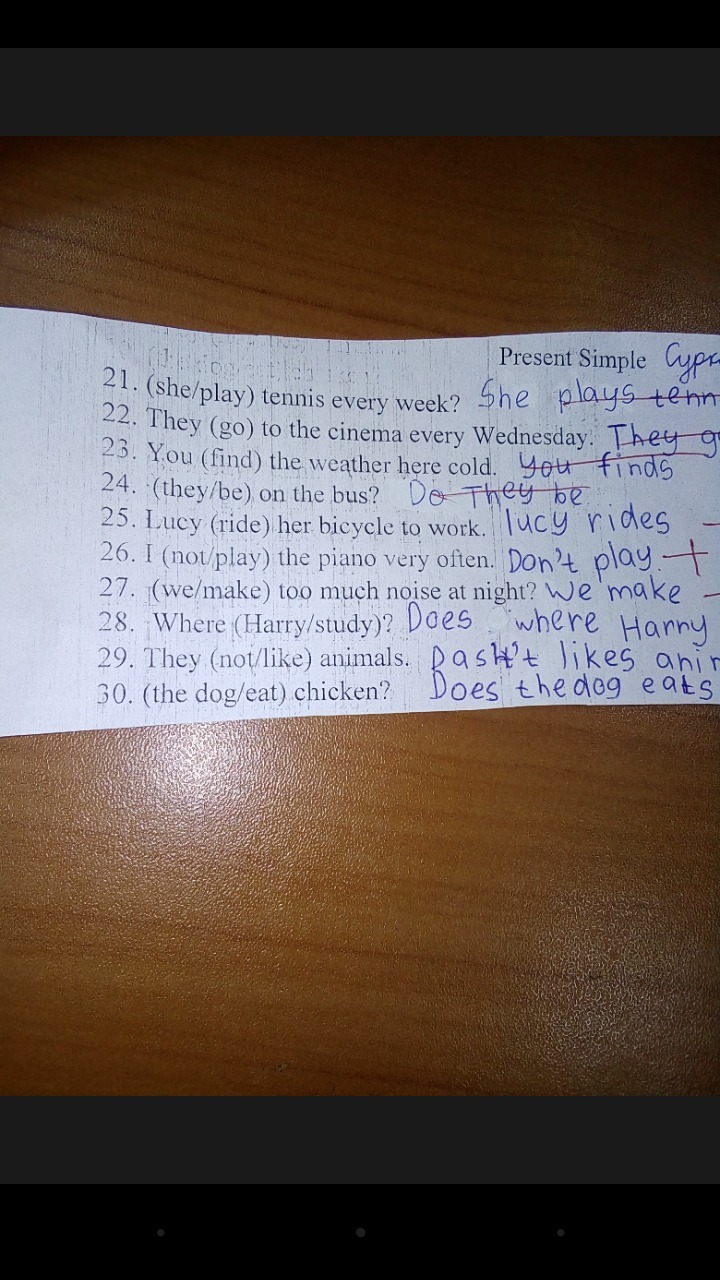 Present Simple
21. (she/play) tennis every week? She plays tenn
22. They (go) to the cinema every Wednesday. They g
23. You (find) the weather here cold. you finds
24. (they/be) on the bus? Do They be
25. Lucy (ride) her bicycle to work. lucy rides
26. I (not/play) the piano very often. Don't play. +
27. (we/make) too much noise at night? We make
28. Where (Harry/study)? Does where Harry
29. They (not/like) animals. likes ani
30. (the dog/eat) chicken? Does the dog eats